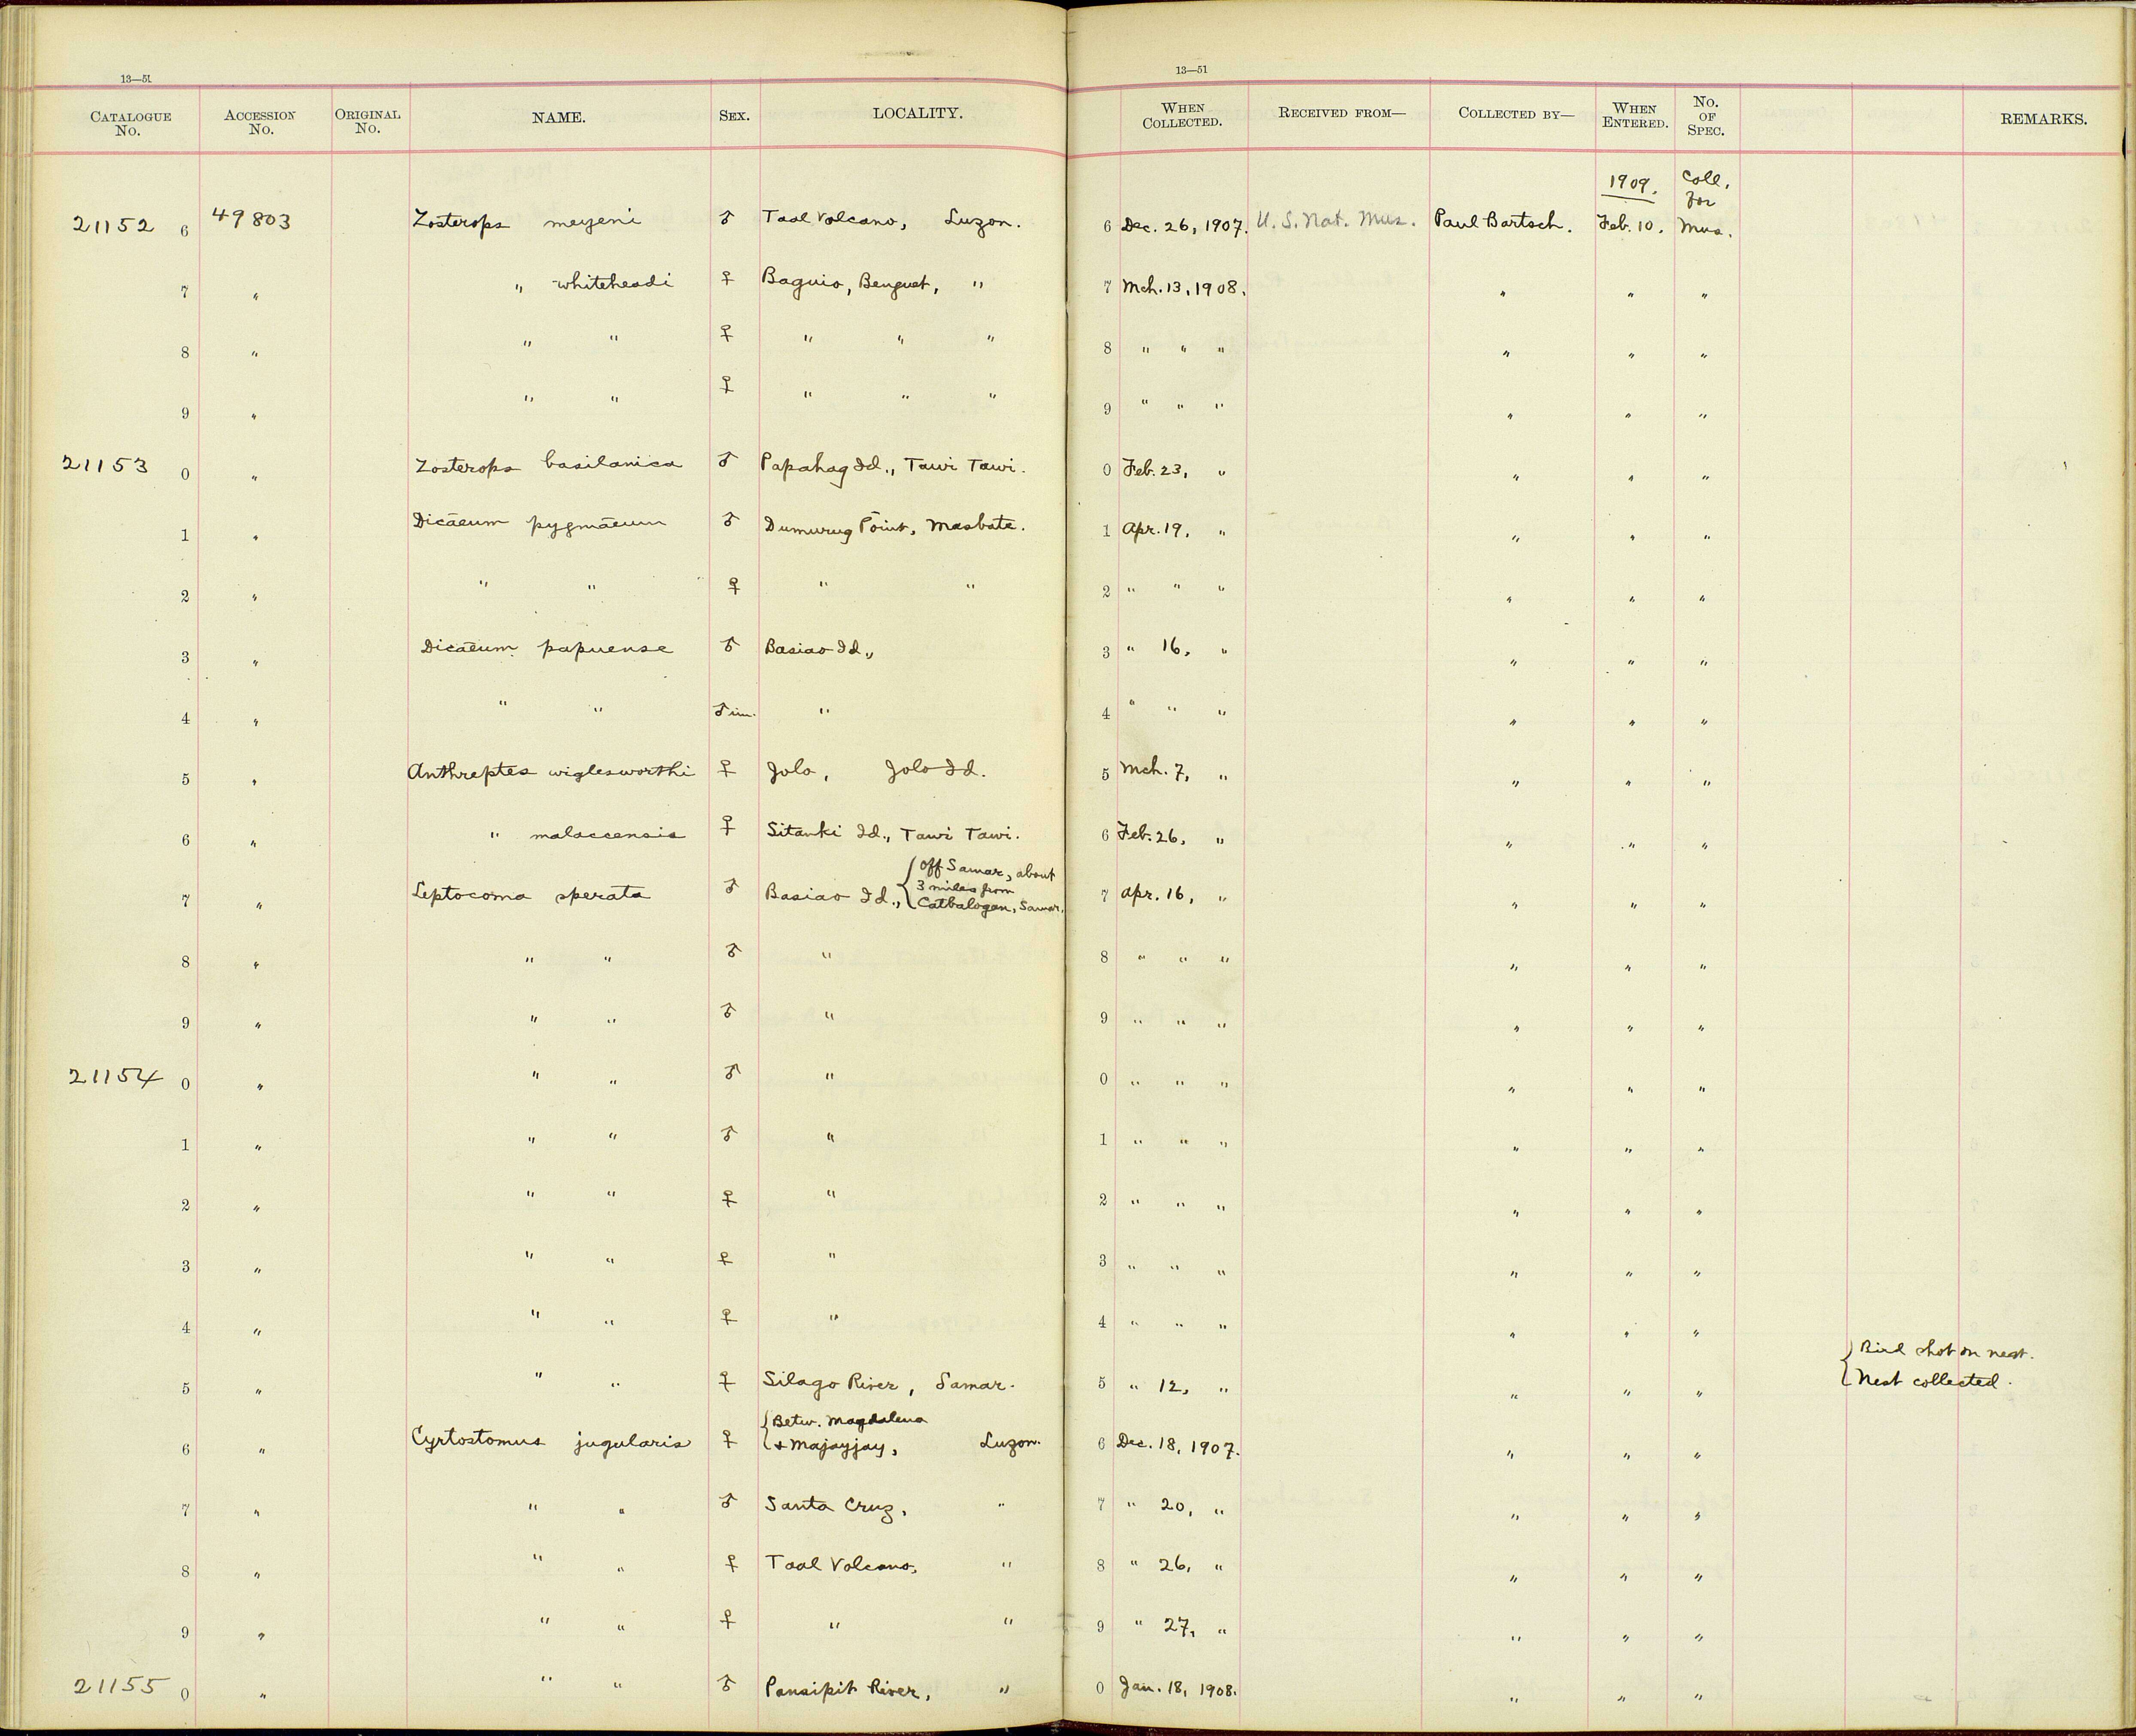 13—51
13—51
CATALOGUE No. ACCESSION No. ORIGINAL No. NAME. SEX. LOCALITY. WHEN COLLECTED. RECEIVED FROM— COLLECTED BY— WHEN ENTERED. No. OF SPEC. REMARKS.
1909. Coll. for
21152 6 49803 Zosterops meyeni ♂ Taal Volcano, Luzon. 6 Dec. 26, 1907. U. S. Nat. Mus. Paul Bartsch. Feb. 10. Mus.
7 " " whiteheadi ♀ Baguio, Benguet, " 7 Mch. 13, 1908. " " "
8 " " " ♀ " " " 8 " " " " " "
9 " " " ♀ " " " 9 " " " " " "
21153 0 " Zosterops basilanica ♂ Papahag Id., Tawi Tawi. 0 Feb. 23, " " " "
1 " Dicaeum pygmaeum ♂ Dumurug Point, Masbate. 1 Apr. 19, " " " "
2 " " " ♀ " " 2 " " " " " "
3 " Dicaeum papuense ♂ Basiao Id., 3 " 16, " " " "
4 " " " ♂ im. " 4 " " " " " "
5 " Anthreptes wiglesworthi ♀ Jolo, Jolo Id. 5 Mch. 7, " " " "
6 " " malaccensis ♀ Sitanki Id., Tawi Tawi. 6 Feb. 26, " " " "
7 " Leptocoma sperata ♂ Basiao Id., { Off Samar, about 3 miles from Catbalogan, Samar. 7 Apr. 16, " " " "
8 " " " ♂ " 8 " " " " " "
9 " " " ♂ " 9 " " " " " "
21154 0 " " " ♂ " 0 " " " " " "
1 " " " ♂ " 1 " " " " " "
2 " " " ♀ " 2 " " " " " "
3 " " " ♀ " 3 " " " " " "
4 " " " ♀ " 4 " " " " " "
5 " " " ♀ Silago River, Samar. 5 " 12, " " " " { Bird shot on nest. Nest collected.
6 " Cyrtostomus jugularis ♀ { Betw. Magdalena & Majayjay, Luzon. 6 Dec. 18, 1907. " " "
7 " " " ♂ Santa Cruz, " 7 " 20, " " " "
8 " " " ♀ Taal Volcano, " 8 " 26, " " " "
9 " " " ♀ " " 9 " 27, " " " "
21155 0 " " " ♂ Pansipit River, " 0 Jan. 18, 1908. " " "